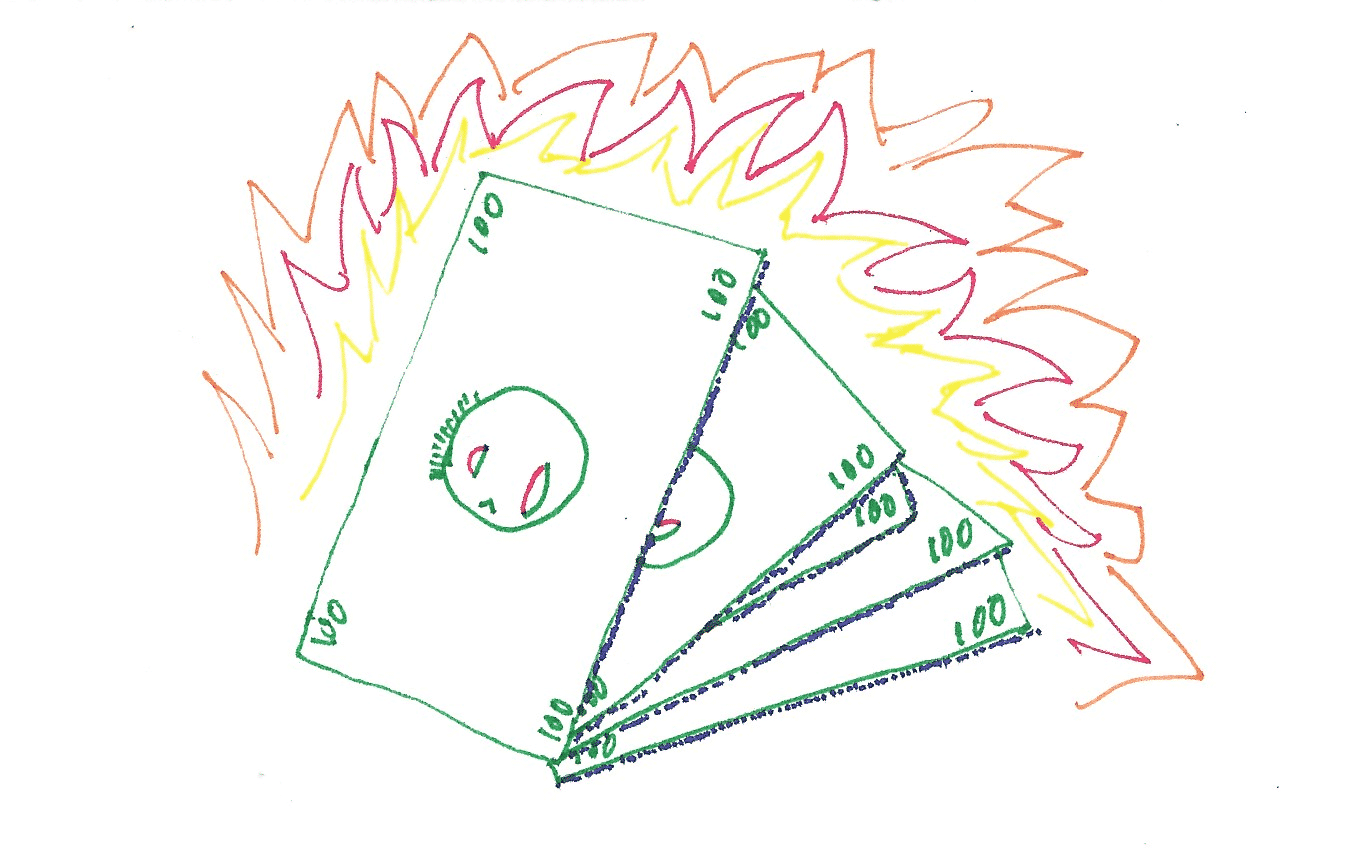 100
100
100
100
100
100
100
100
100
100
100